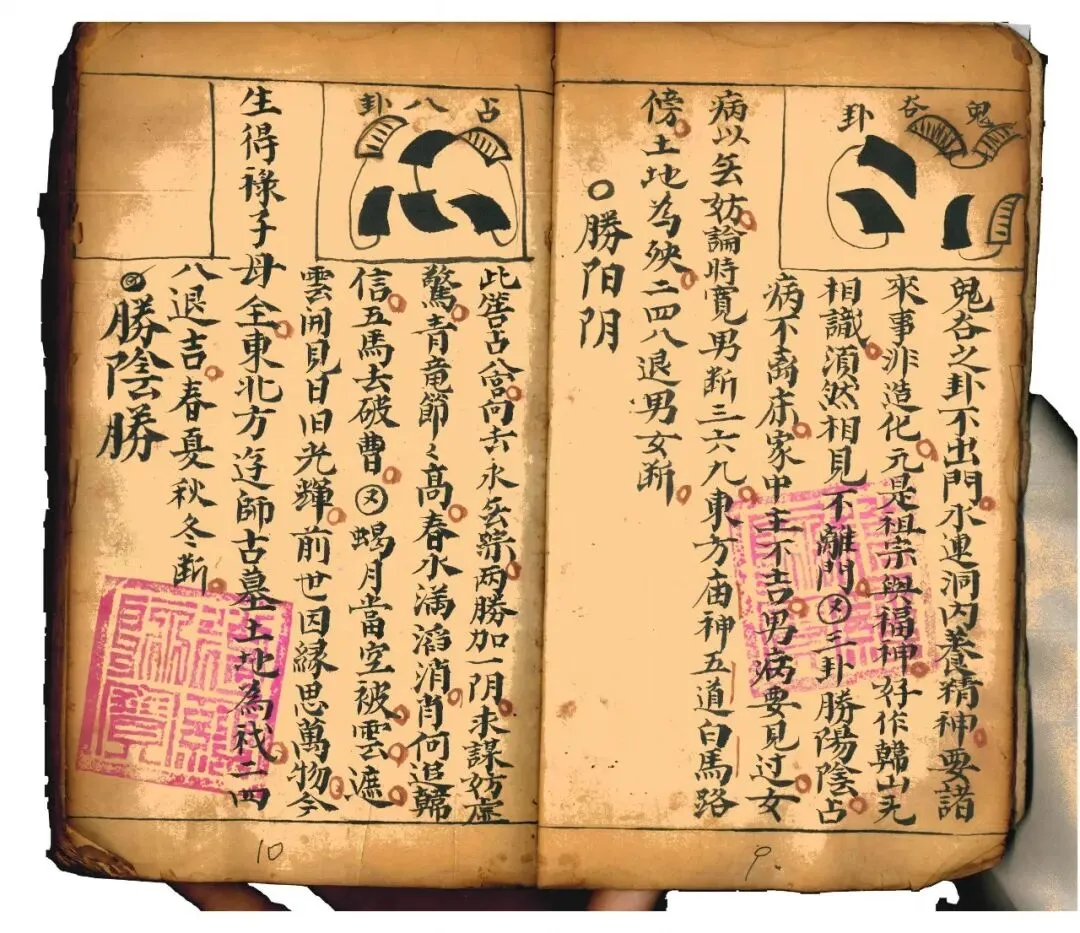 鬼谷卦
鬼谷之卦不出門水連洞内養精神要諸
來事非造化元是祖宗與福神好作歸山先
相識湏然相見不離門又二卦勝陽陰占
病不离床家中主不吉男病要見过女
病以妨論時寛男断三六九東方庙神五道白馬路
傍土地為殃二四八退男女断
勝阳阴
占八卦
此筶占向去永两勝加一阴求謀妨虚
驚青竜節々髙春水满滔消肖何追歸
信五馬去破曹又蝎月當空被雲遮
雲開見日旧光輝前世因縁思萬物今
生得禄子母全東北方師古墓土地為二四
八退吉春夏秋冬断
勝陰勝
9
10